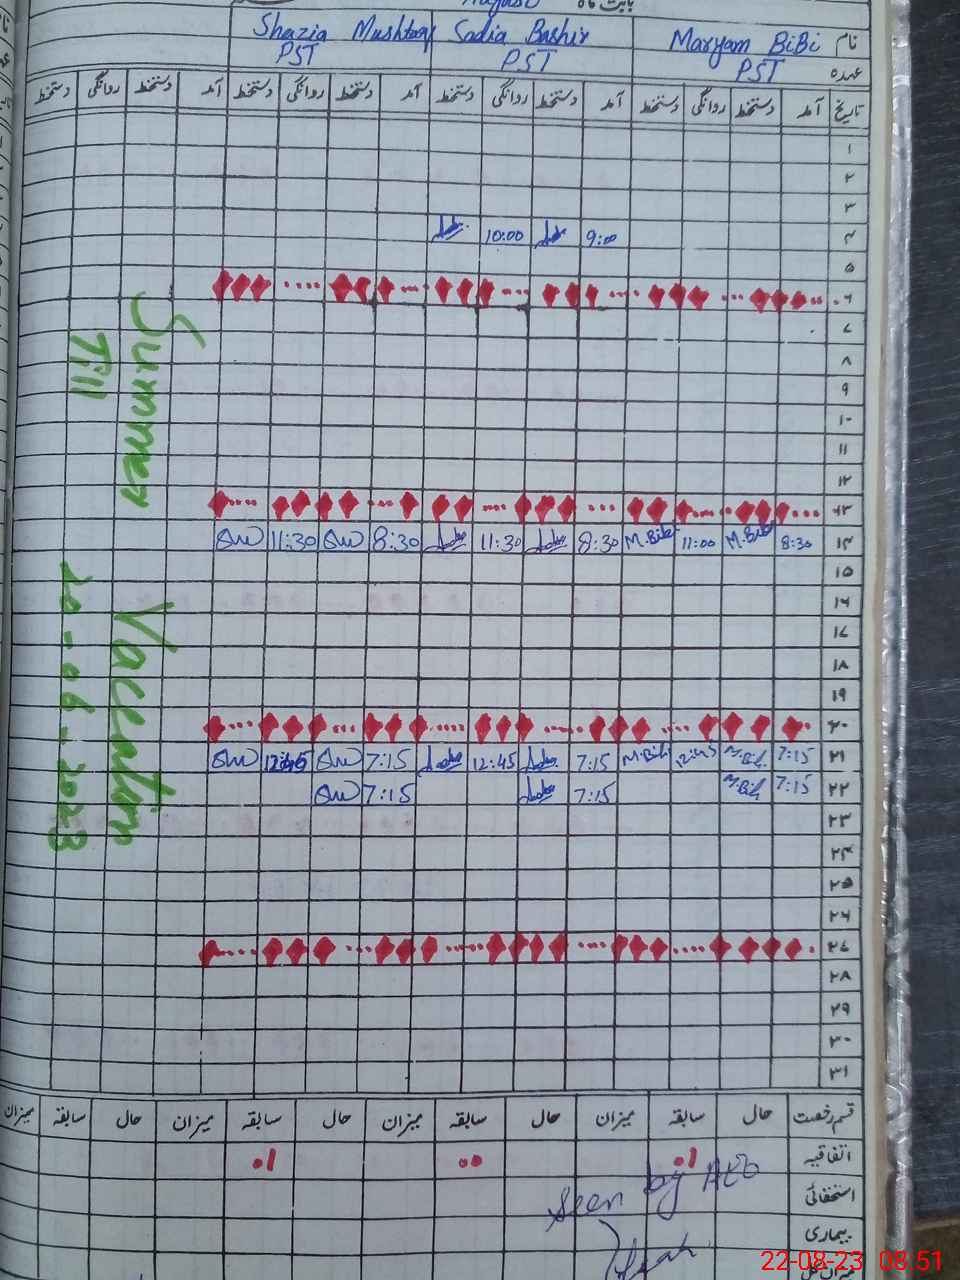 August بابت ماہ
نام Maryam BiBi Sadia Bashir Shazia Mushtaq
عہدہ PST PST PST
تاریخ آمد دستخط روانگی دستخط آمد دستخط روانگی دستخط آمد دستخط روانگی دستخط آمد دستخط روانگی دستخط
۱
۲
۳
۴ 9:00 10:00
۵
۶
۷
۸
۹
۱۰
۱۱
۱۲
۱۳
۱۴ 8:30 M.Bibi 11:00 M.Bibi 8:30 11:30 8:30 SM 11:30 SM
۱۵
۱۶
۱۷
۱۸
۱۹
۲۰
۲۱ 7:15 M.Bibi 12:45 M.Bibi 7:15 12:45 7:15 SM 12:45 SM
۲۲ 7:15 M.Bibi 7:15 7:15 SM
۲۳
۲۴
۲۵
۲۶
۲۷
۲۸
۲۹
۳۰
۳۱
Summer Vacation
Till 20-06-2023
قسم رخصت حال سابقہ میزان حال سابقہ میزان حال سابقہ میزان حال سابقہ میزان
اتفاقیہ 01 00 01
استحقاقی
بیماری
میزان کل
Seen by AEO
22-08-23 08.51